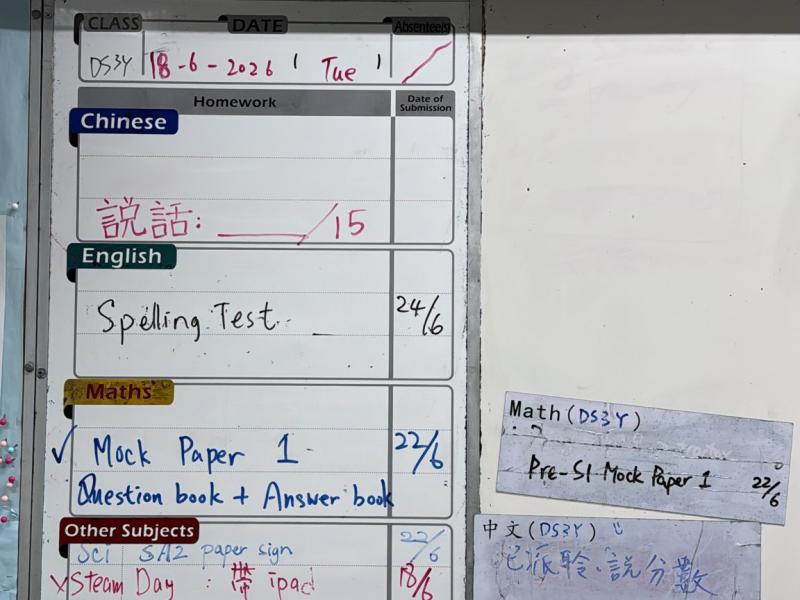 CLASS DATE Absentee(s)
DS3Y 18-6-2026 ( Tue )
Homework Date of Submission
Chinese
說話: ____/15
English
Spelling Test 24/6
Maths
✓ Mock Paper 1 22/6
Question book + Answer book
Other Subjects
Sci SA2 paper sign 22/6
×Steam Day : 帶 ipad 18/6
Math (DS3Y)
Pre-S1 Mock Paper 1 22/6
中文 (DS3Y)
已派聆、說分數